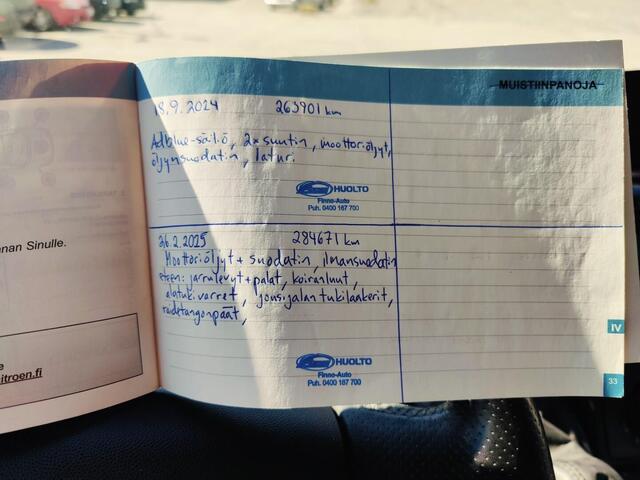 MUISTIINPANOJA
18.9.2024 263901 km
Adblue-säiliö, 2x suutin, moottoriöljyt,
öljynsuodatin, laturi
HUOLTO
Finno-Auto
Puh. 0400 167 700
nan Sinulle.
26.2.2025 284671 km
Moottoriöljyt + suodatin, ilmansuodatin
eteen: jarrulevyt + palat, koiranluut,
alatukivarret, jousijalan tukilaakerit,
raidetangonpäät,
HUOLTO
Finno-Auto
Puh. 0400 167 700
e
itroen.fi
IV
33